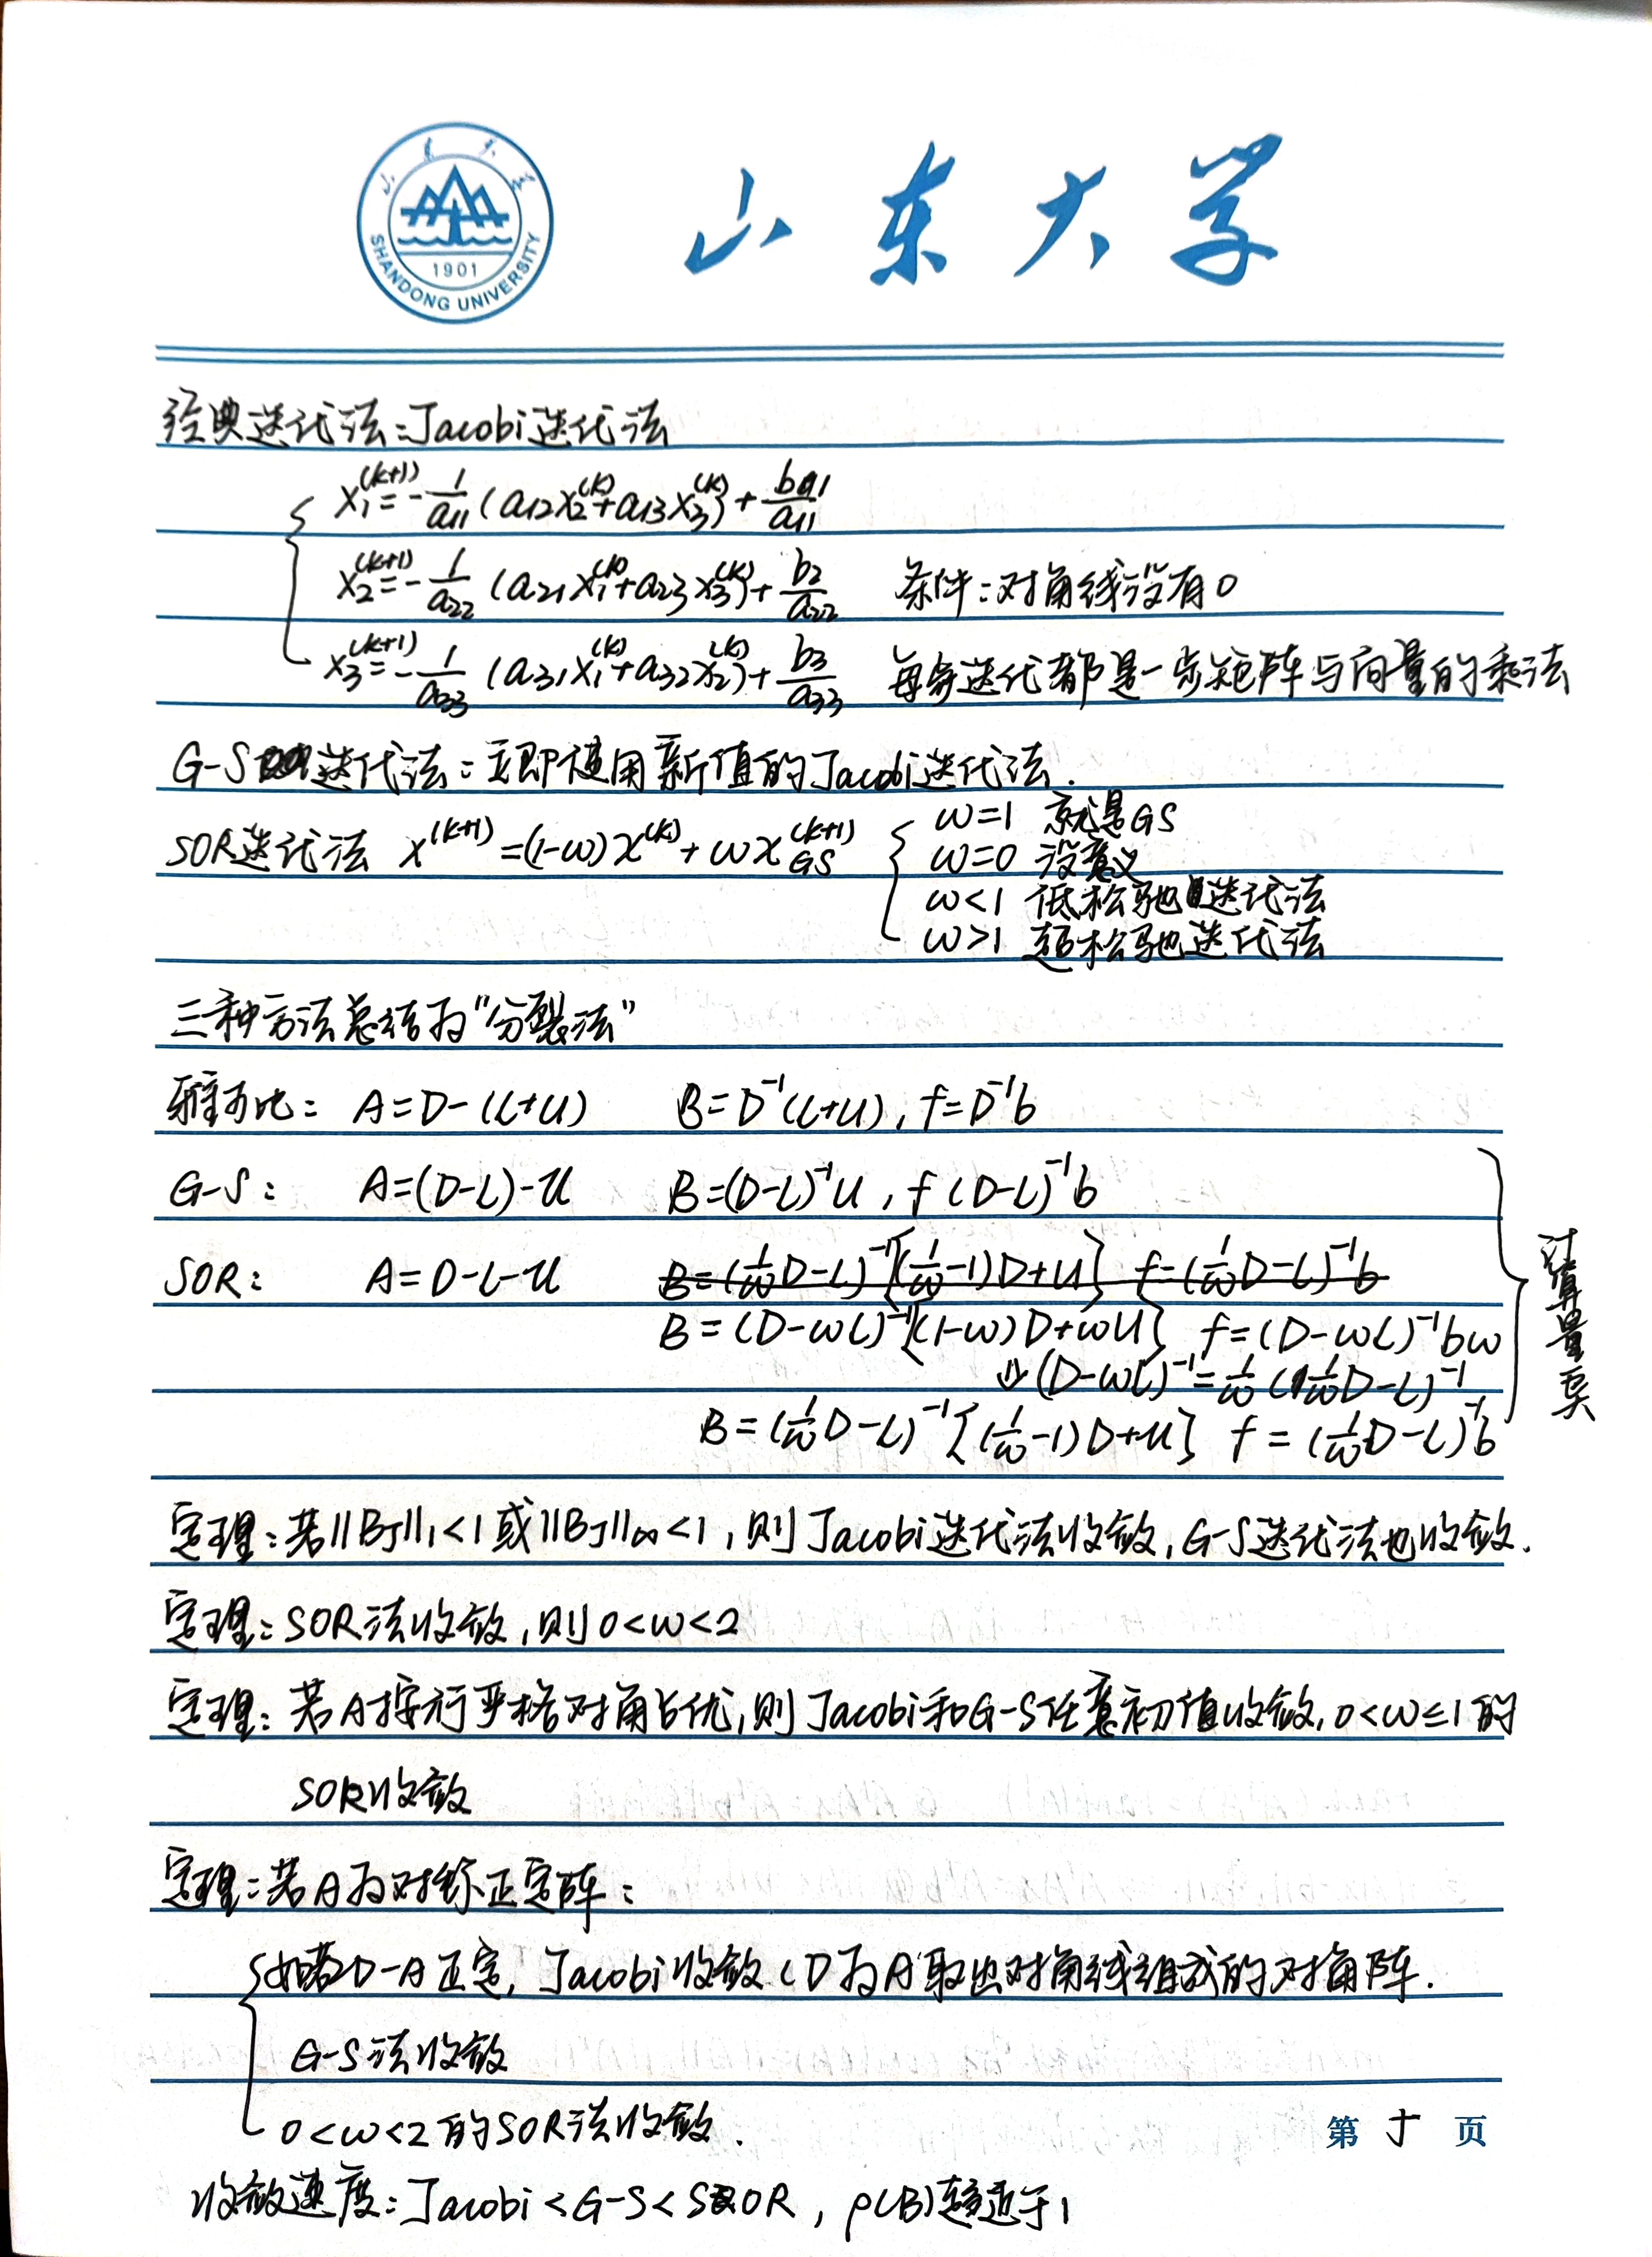 山东大学
SHANDONG UNIVERSITY
1901
山 东 大 学
经典迭代法:Jacobi迭代法
x₁^(k+1) = -1/a11 (a12x₂^(k)+a13x₃^(k)) + b1/a11
x₂^(k+1) = -1/a22 (a21x₁^(k)+a23x₃^(k)) + b2/a22 条件:对角线没有0
x₃^(k+1) = -1/a33 (a31x₁^(k)+a32x₂^(k)) + b3/a33 每步迭代都是一步矩阵与向量的乘法
G-S迭代法:立即使用新值的Jacobi迭代法.
SOR迭代法 x^(k+1) = (1-ω)x^(k) + ωx_GS^(k+1)
ω=1 就是GS
ω=0 没意义
ω<1 低松驰迭代法
ω>1 超松驰迭代法
三种方法总结为“分裂法”
雅可比: A=D-(L+U) B=D^-1(L+U), f=D^-1b
G-S: A=(D-L)-U B=(D-L)^-1U, f(D-L)^-1b
SOR: A=D-L-U B=(1/ωD-L)^-1[(1/ω-1)D+U] f=(1/ωD-L)^-1b
B=(D-ωL)^-1[(1-ω)D+ωU] f=(D-ωL)^-1bω
⇓(D-ωL)^-1=1/ω(1/ωD-L)^-1
B=(1/ωD-L)^-1[(1/ω-1)D+U] f=(1/ωD-L)^-1b
计算量
定理:若||BJ||₁<1或||BJ||∞<1,则Jacobi迭代法收敛,G-S迭代法也收敛.
定理:SOR法收敛,则0<ω<2
定理:若A按行严格对角占优,则Jacobi和G-S任意初值收敛,0<ω≤1的
SOR收敛
定理:若A为对称正定阵:
若2D-A正定,Jacobi收敛(D为A取出对角线组成的对角阵.
G-S法收敛
0<ω<2的SOR法收敛.
第 5 页
收敛速度:Jacobi<G-S<SOR, ρ(B)越近于1